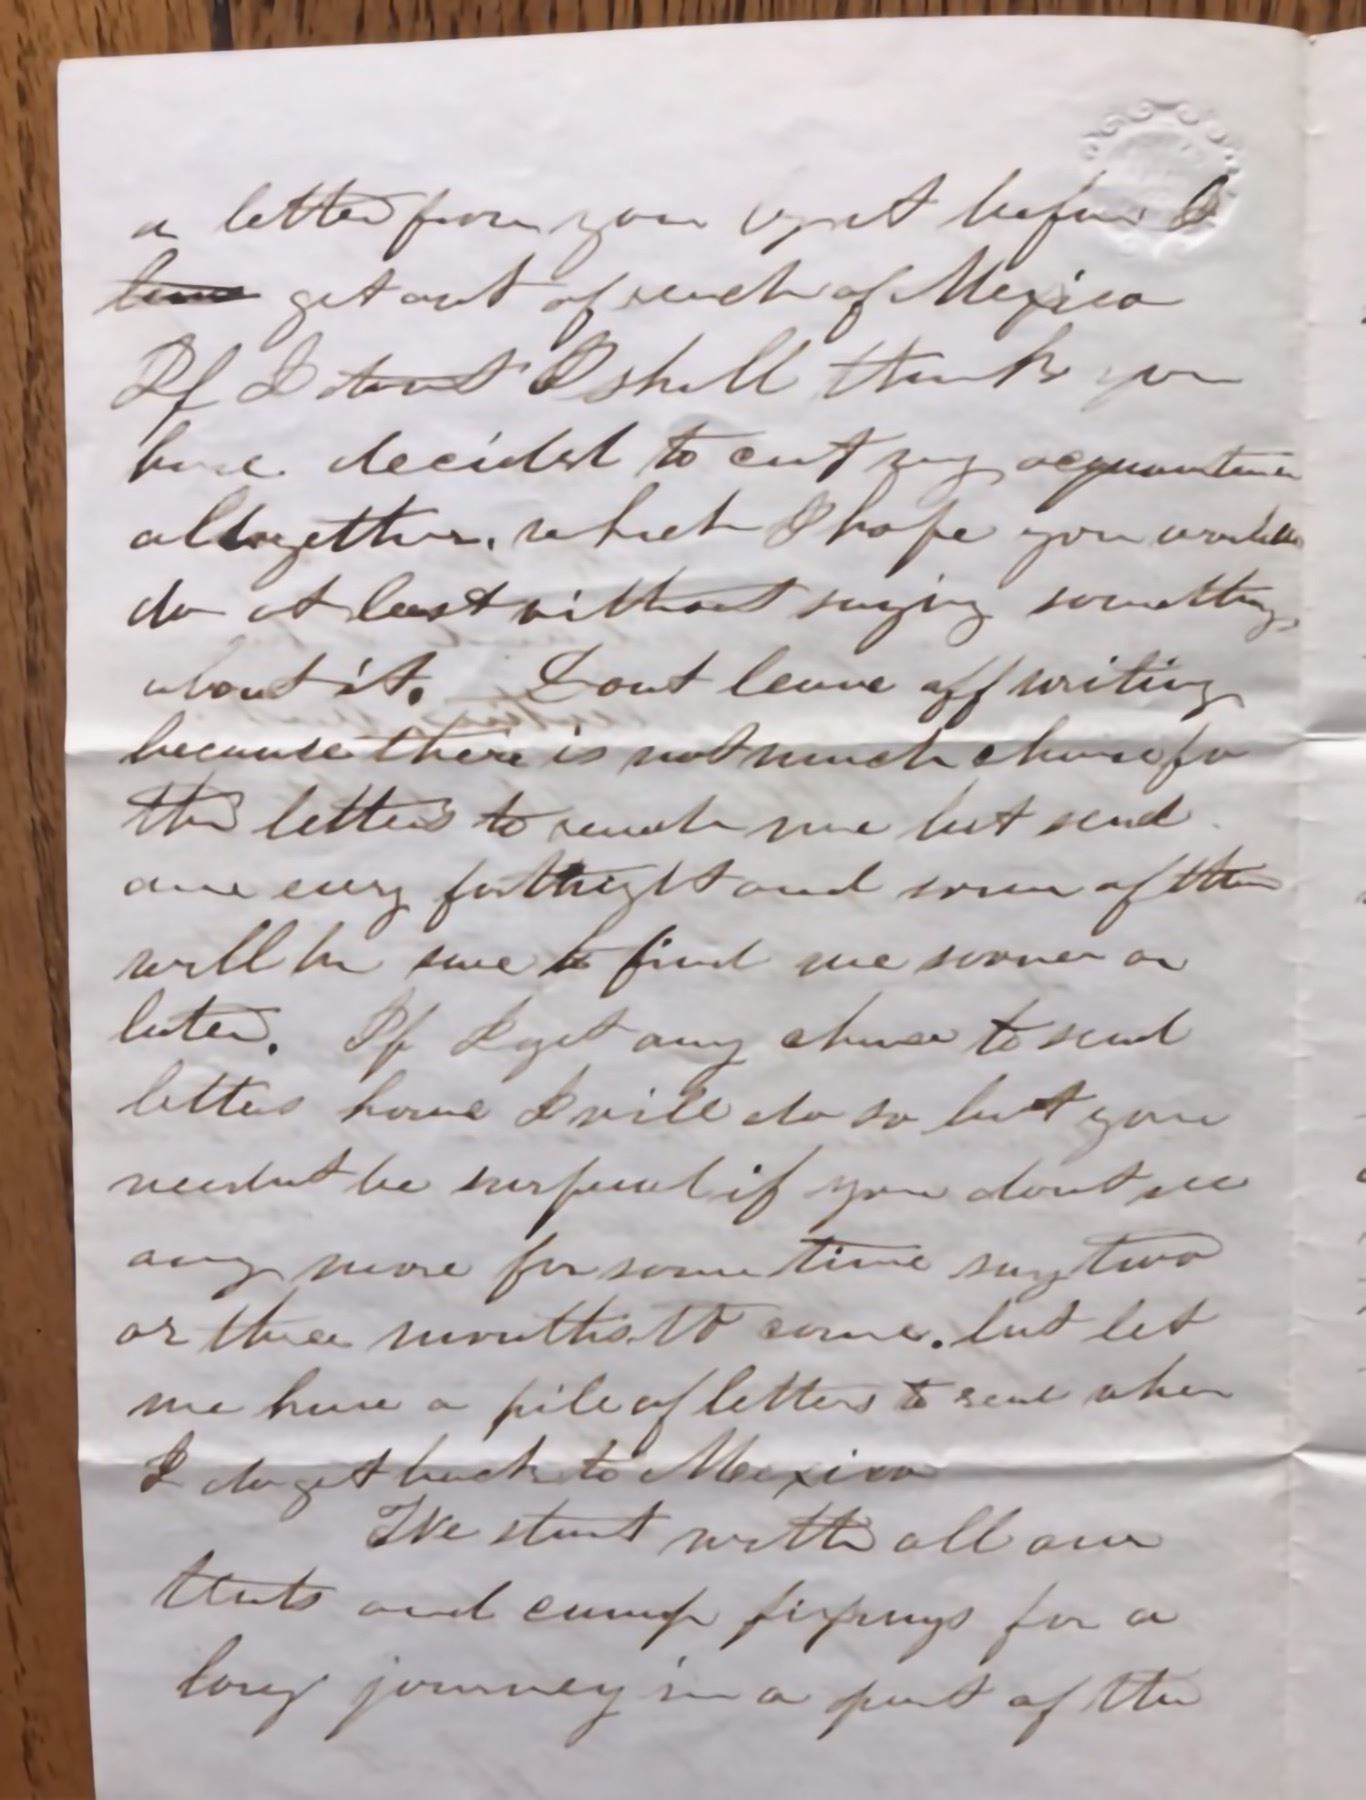 a letter from you yet before I
get out of reach of Mexico
If I dont I shall think you
have decided to cut my acquaintance
altogether, which I hope you wouldnt
do at least without saying something
about it. Dont leave off writing
because there is not much chance for
the letters to reach me but send
one every fortnight and some of them
will be sure to find me sooner or
later. If I get any chance to send
letters home I will do so but you
neednt be surprised if you dont see
any more for some time say two
or three months to come. but let
me have a pile of letters to read when
I do get back to Mexico
We start with all our
tents and camp fixings for a
long journey in a part of the